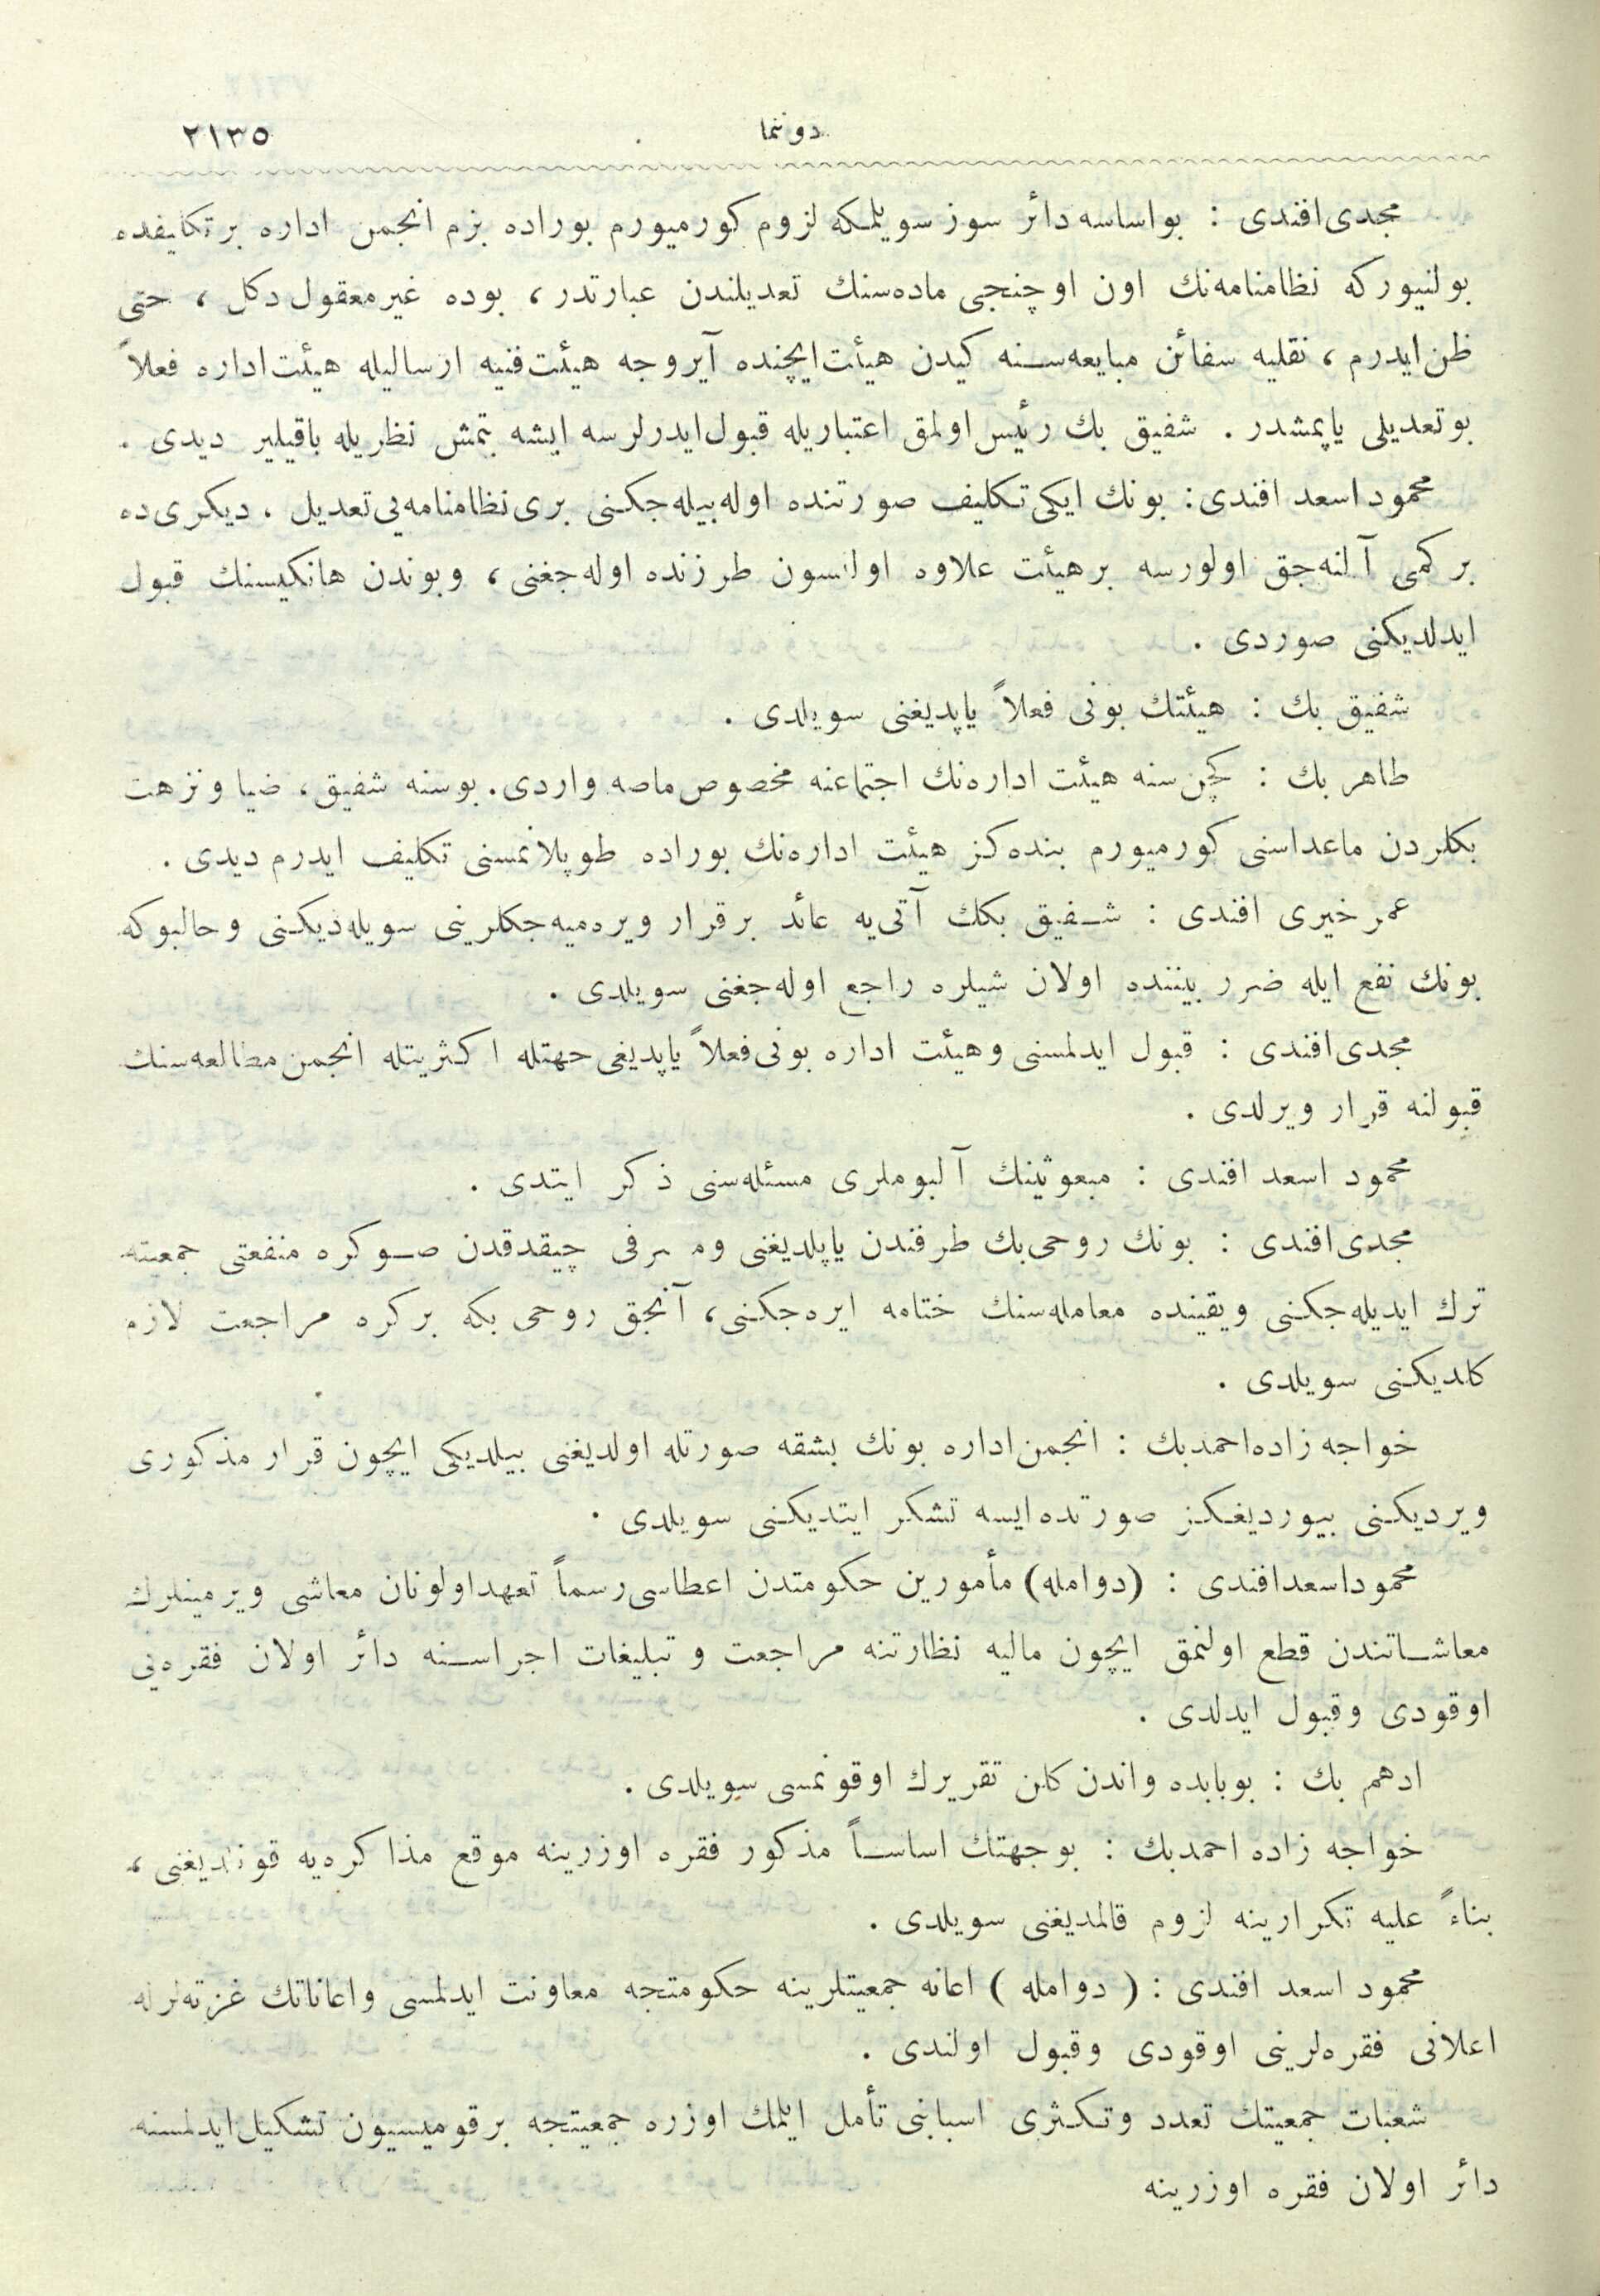 دوننما ٢١٣٥
مجدی‌افندی : بواساسه دائر سوز سویلمكه لزوم كورمیورم بوراده بزم انجمن اداره بر تكلیفده
بولنیوركه نظامنامه‌نك اون اوچنجی ماده‌سنك تعدیلندن عبارتدر ، بوده غیر معقول دكل ، حتی
ظن ایدرم ، نقلیه سفائن مبایعه‌سنه كیدن هیئت ایچنده آیروجه هیئت فنیه ارسالیله هیئت اداره فعلاً
بو تعدیلی یاپمشدر . شفیق بك رئیس اولمق اعتباریله قبول ایدرلرسه ایشه بتمش نظریله باقیلیر دیدی .
محمود اسعد افندی : بونك ایكی تكلیف صورتنده اوله‌بیله‌جكنی بری نظامنامه‌یی تعدیل ، دیكری ده
بر كمی آلنه‌جق اولورسه بر هیئت علاوه اولنسون طرزنده اوله‌جغنی ، وبوندن هانكیسنك قبول
ایدلدیكنی صوردی .
شفیق بك : هیئتك بونی فعلاً یاپدیغنی سویلدی .
طاهر بك : كچن سنه هیئت اداره‌نك اجتماعنه مخصوص ماصه واردی . بوسنه شفیق ، ضیا ونزهت
بكلردن ماعداسنی كورمیورم بنده‌كز هیئت اداره‌نك بوراده طوپلانمسنی تكلیف ایدرم دیدی .
عمر خیری افندی : شفیق بكك آتی‌یه عائد بر قرار ویره‌میه‌جكلرینی سویله‌دیكنی وحالبوكه
بونك نفع ایله ضرر بیننده اولان شیلره راجع اوله‌جغنی سویلدی .
مجدی‌افندی : قبول ایدلمسنی وهیئت اداره بونی فعلاً یاپدیغی جهتله اكثریتله انجمن مطالعه‌سنك
قبولنه قرار ویرلدی .
محمود اسعد افندی : مبعوثینك آلبوملری مسئله‌سنی ذكر ایتدی .
مجدی‌افندی : بونك روحی‌بك طرفندن یاپلدیغنی ومصرفی چیقدقدن صوكره منفعتی جمعیته
ترك ایدیله‌جكنی ویقینده معامله‌سنك ختامه ایره‌جكنی ، آنجق روحی بكه بر كره مراجعت لازم
كلدیكنی سویلدی .
خواجه زاده‌احمدبك : انجمن اداره بونك بشقه صورتله اولدیغنی بیلدیكی ایچون قرار مذكوری
ویردیكنی بیوردیغكز صورتده‌ایسه تشكر ایتدیكنی سویلدی .
محمود اسعد افندی : (دوامله) مأمورین حكومتدن اعطاسی رسماً تعهد اولونان معاشی ویرمینلرك
معاشاتندن قطع اولنمق ایچون مالیه نظارتنه مراجعت و تبلیغات اجراسنه دائر اولان فقره‌یی
اوقودی وقبول ایدلدی .
ادهم بك : بوبابده واندن كلن تقریرك اوقونمسی سویلدی .
خواجه زاده احمدبك : بو جهتك اساساً مذكور فقره اوزرینه موقع مذاكره‌یه قونلدیغنی ،
بناءً علیه تكرارینه لزوم قالمدیغنی سویلدی .
محمود اسعد افندی : ( دوامله ) اعانه جمعیتلرینه حكومتجه معاونت ایدلمسی واعاناتك غزته‌لرله
اعلانی فقره‌لرینی اوقودی وقبول اولندی .
شعبات جمعیتك تعدد وتكثری اسبابنی تأمل ایلمك اوزره جمعیتجه بر قومیسیون تشكیل ایدلمسنه
دائر اولان فقره اوزرینه